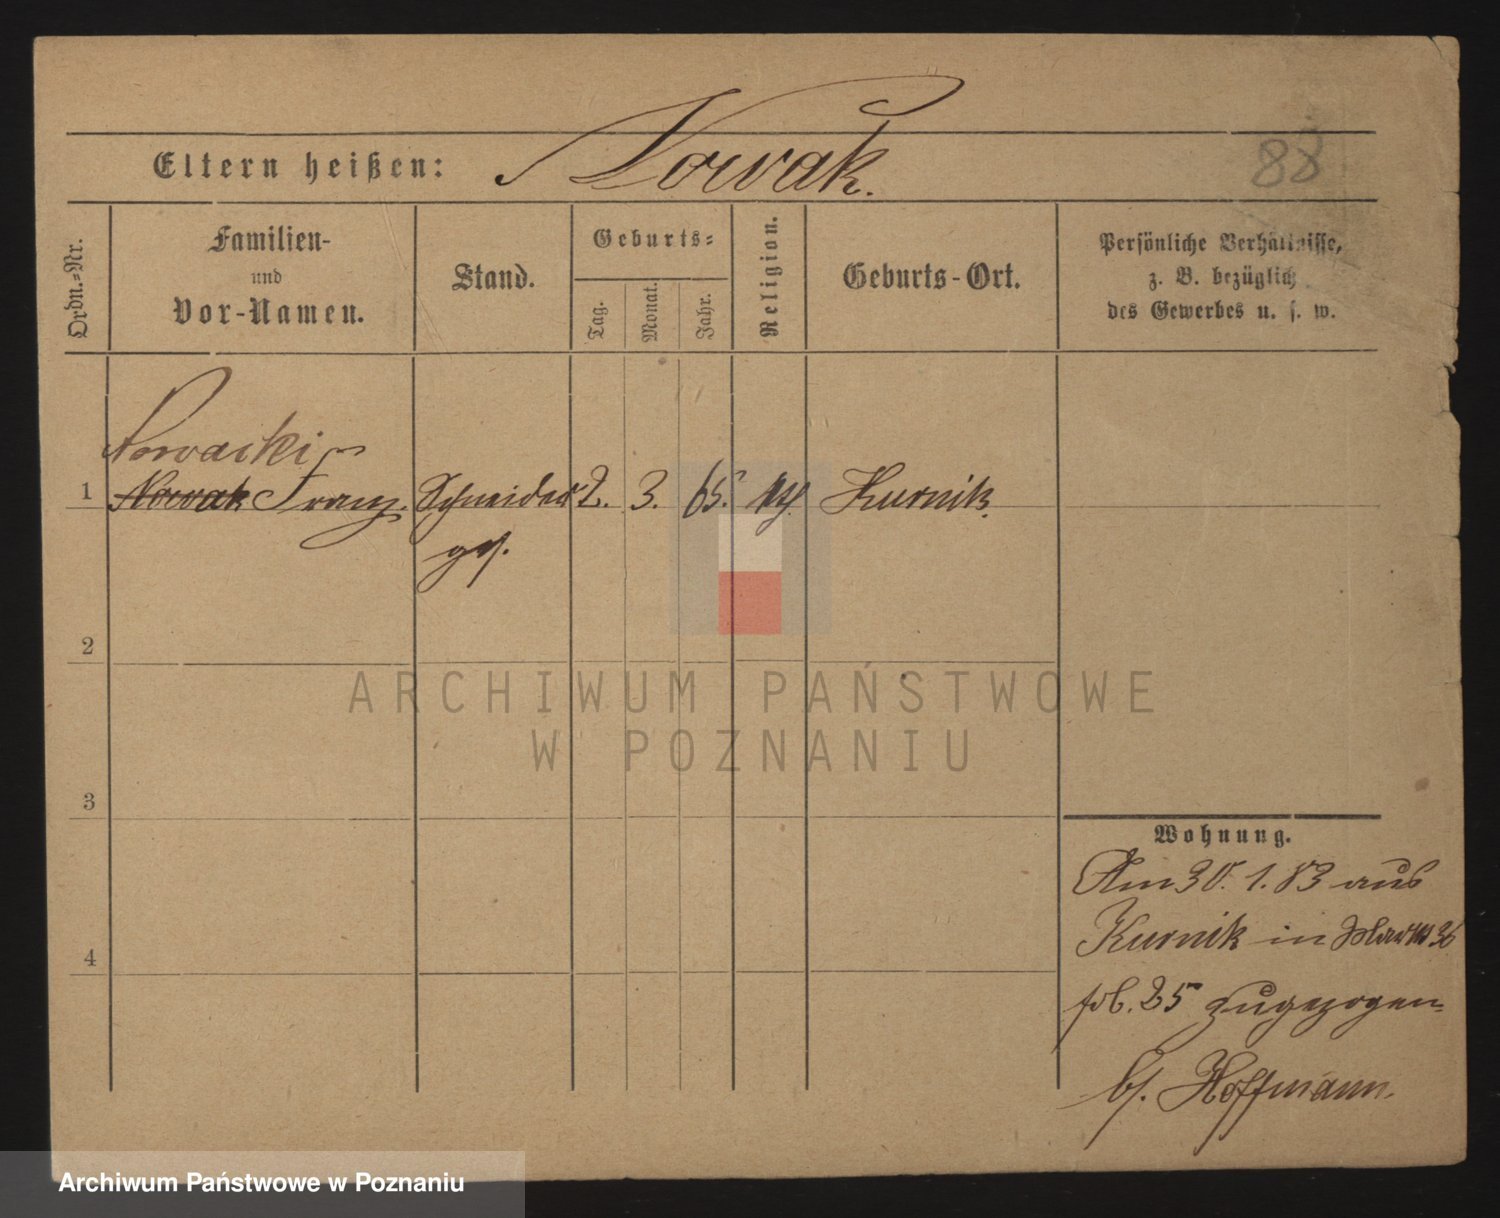 Nowak.
Eltern heißen:
88
Ordn.-Nr.
Familien-
und
Vor-Namen.
Stand.
Geburts-
Tag.
Monat.
Jahr.
Religion.
Geburts-Ort.
Persönliche Verhältnisse,
z. B. bezüglich
des Gewerbes u. s. w.
Nowacki
1 Nowak Franz. Schneider 2. 3. 65. Kurnik.
ges.
2
3
4
Wohnung.
Am 30.1.83 aus
Kurnik in
25 zugezogen
b/. Hoffmann.
ARCHIWUM PAŃSTWOWE
W POZNANIU
Archiwum Państwowe w Poznaniu